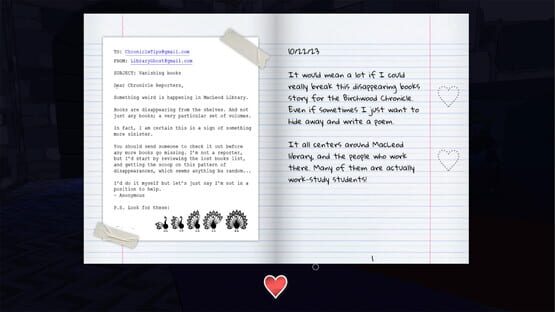 TO: ChronicleTips@gmail.com
FROM: LibraryGhost@gmail.com
SUBJECT: Vanishing books
Dear Chronicle Reporters,
Something weird is happening in MacLeod Library.
Books are disappearing from the shelves. And not
just any books; a very particular set of volumes.
In fact, I am certain this is a sign of something
more sinister.
You should send someone to check it out before
any more books go missing. I'm not a reporter,
but I'd start by reviewing the lost books list,
and getting the scoop on this pattern of
disappearances, which seems anything but random...
I'd do it myself but let's just say I'm not in a
position to help.
- Anonymous
P.S. Look for these:
10/22/23
It would mean a lot if I could
really break this disappearing books
story for the Birchwood Chronicle.
Even if sometimes I just want to
hide away and write a poem.
It all centers around MacLeod
library, and the people who work
there. Many of them are actually
work-study students!
1